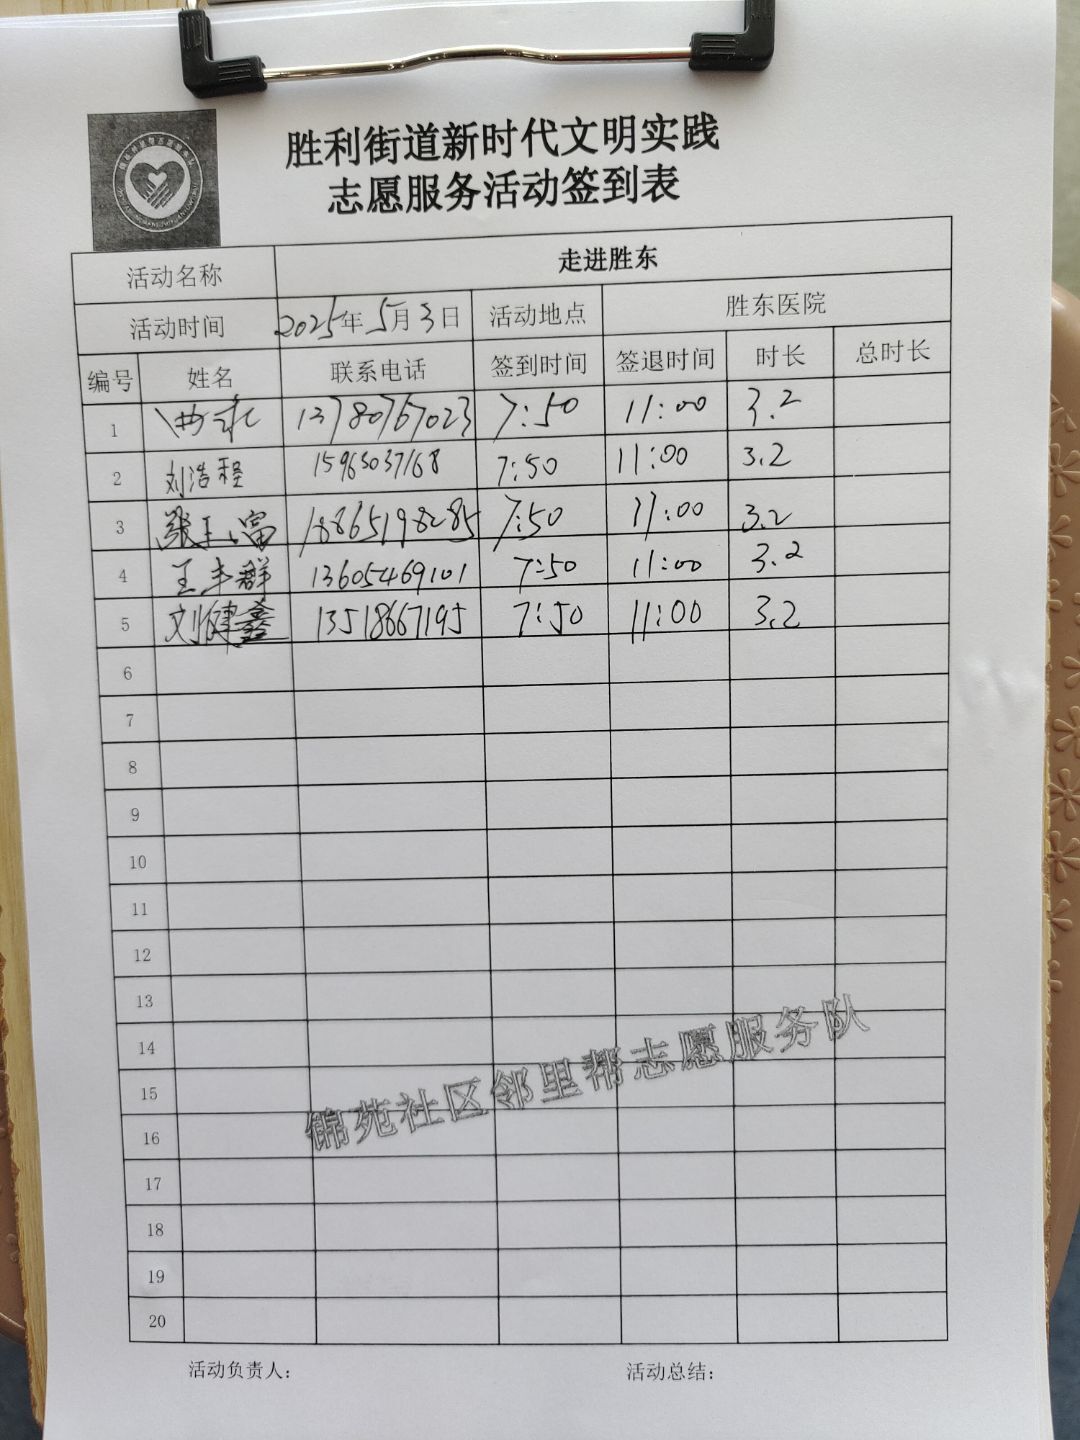 胜利街道新时代文明实践
志愿服务活动签到表
活动名称 走进胜东
活动时间 2025年5月3日 活动地点 胜东医院
编号 姓名 联系电话 签到时间 签退时间 时长 总时长
1 13780767023 7:50 11:00 3.2
2 刘浩程 15963037168 7:50 11:00 3.2
3 张玉富 18865198285 7:50 11:00 3.2
4 王丰群 13605469101 7:50 11:00 3.2
5 刘健鑫 13518667195 7:50 11:00 3.2
6
7
8
9
10
11
12
13
14
15
16
17
18
19
20
锦苑社区邻里帮志愿服务队
活动负责人： 活动总结：